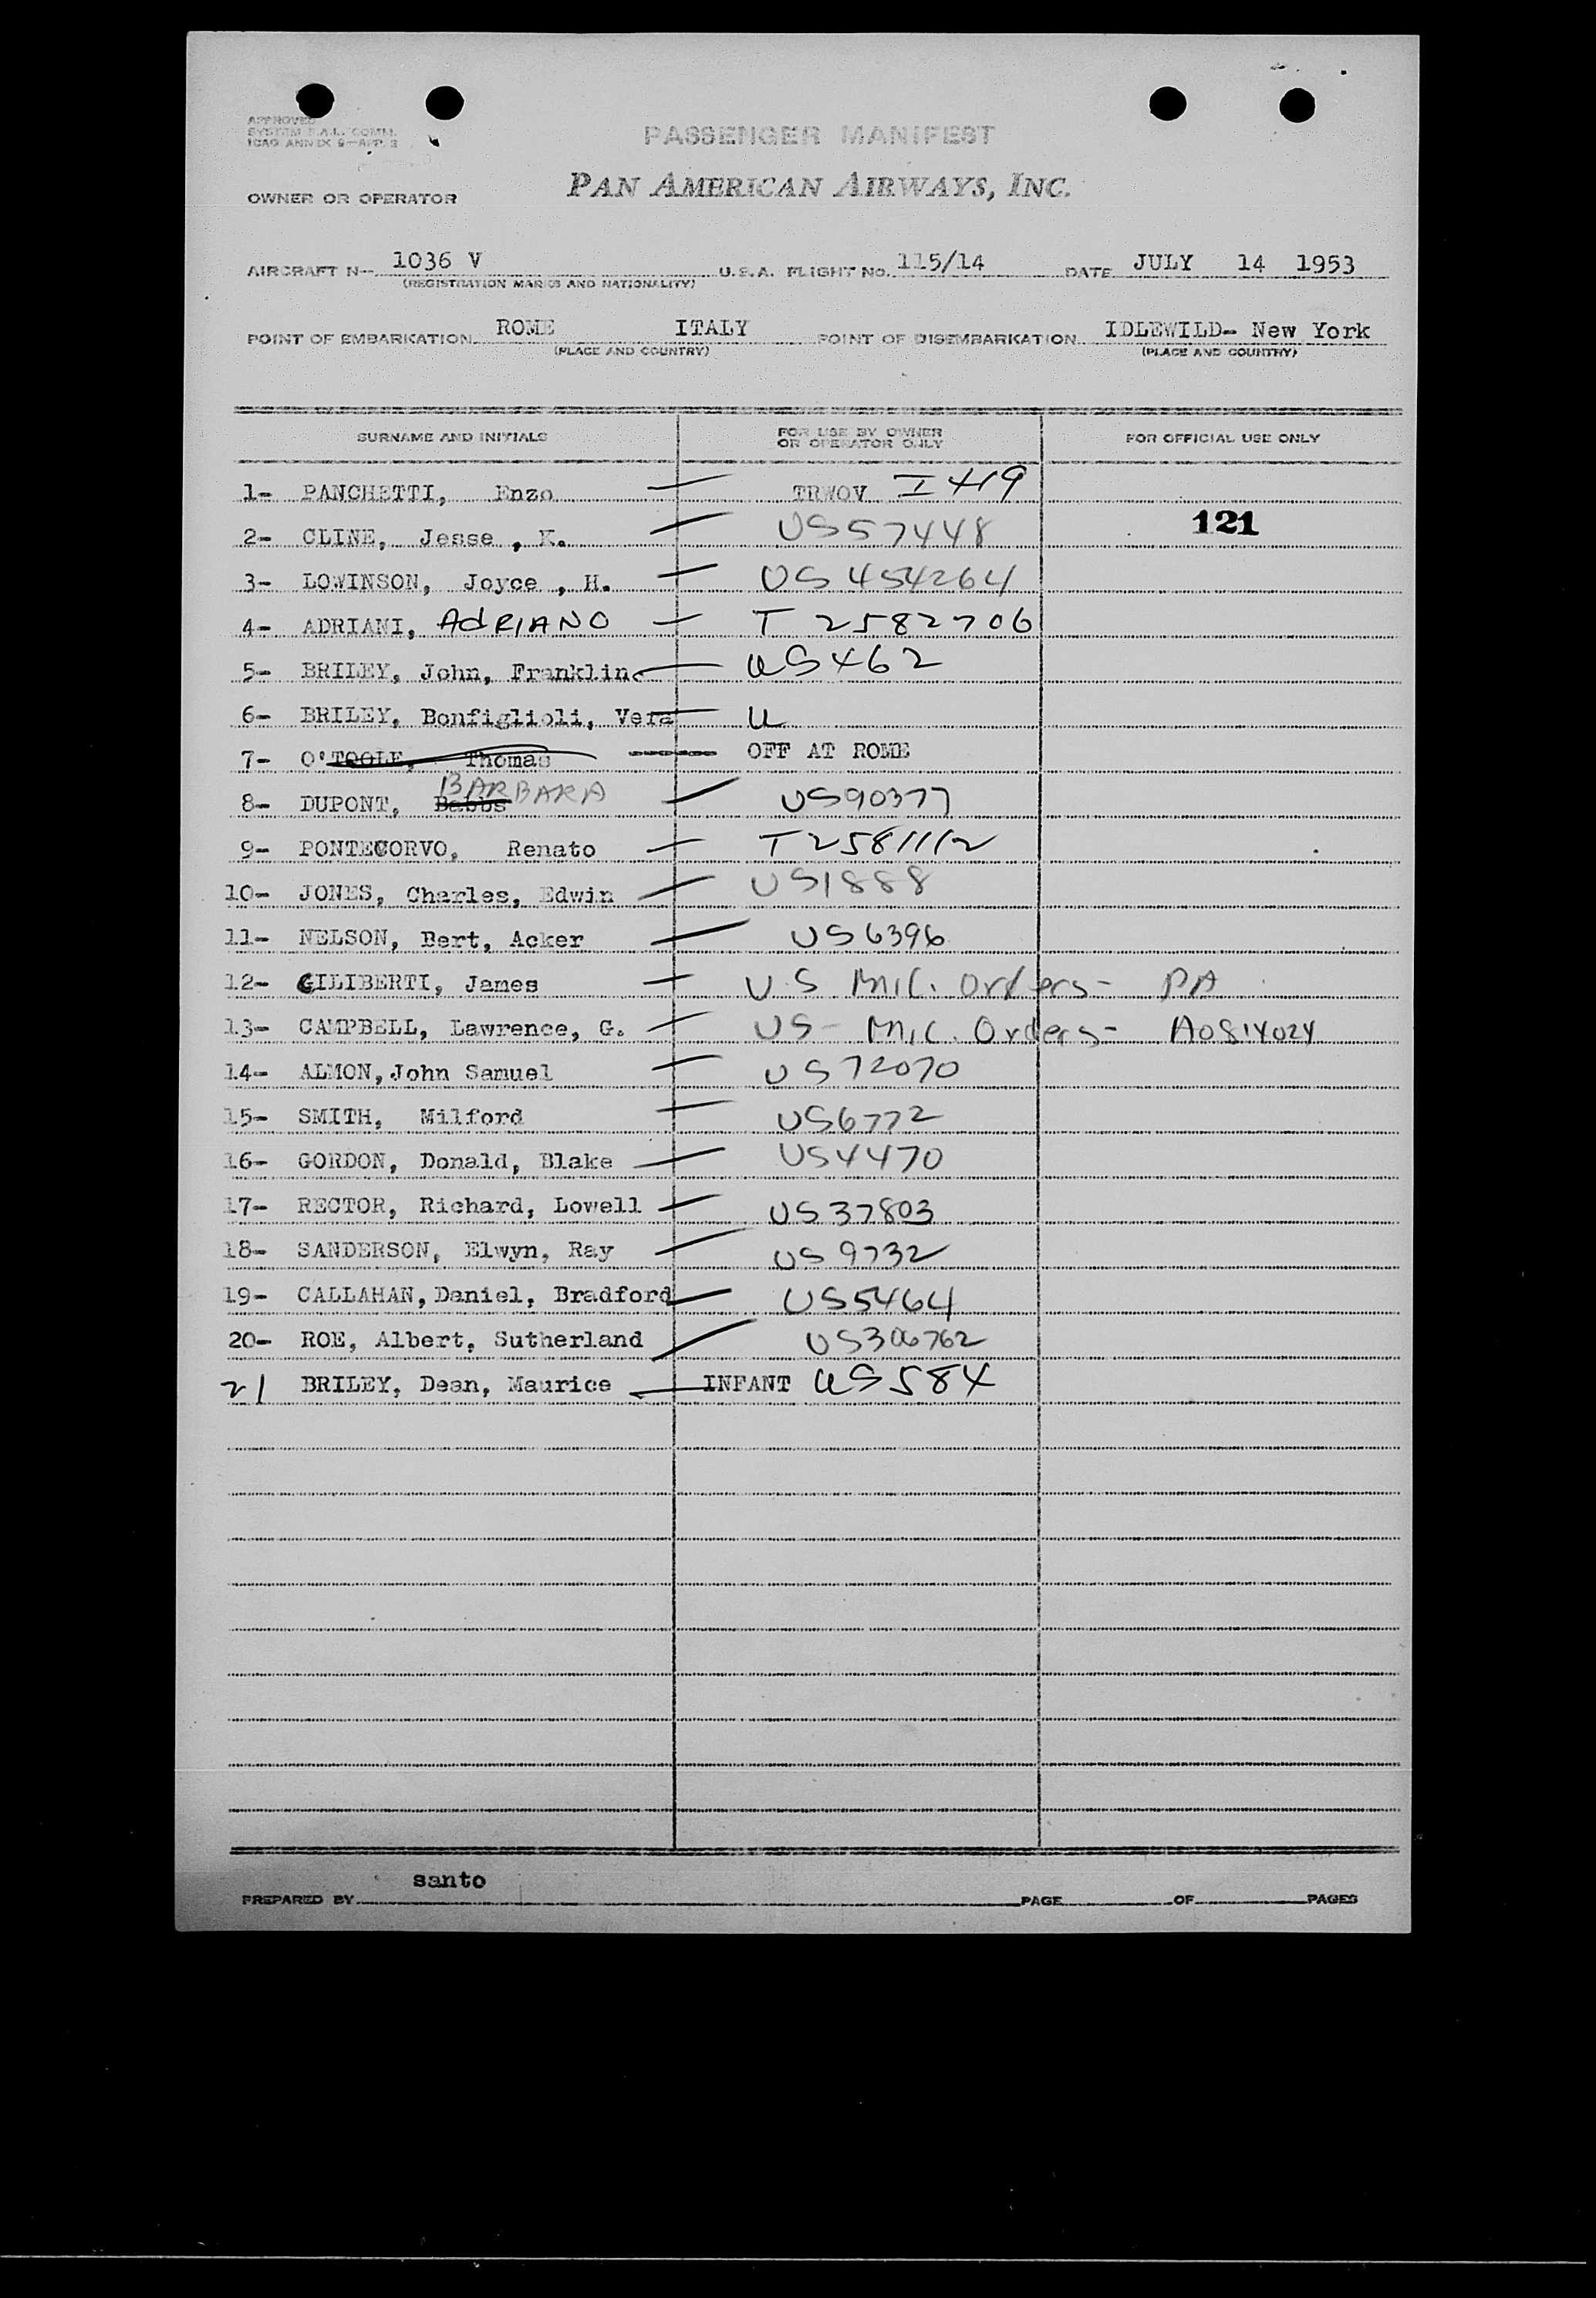 APPROVED
SYSTEM F.A.L. COMM.
ICAO ANNEX 9—APP. 3
PASSENGER MANIFEST
PAN AMERICAN AIRWAYS, INC.
OWNER OR OPERATOR
AIRCRAFT N-- 1036 V U.S.A. FLIGHT NO. 115/14 DATE JULY 14 1953
(REGISTRATION MARKS AND NATIONALITY)
POINT OF EMBARKATION ROME ITALY POINT OF DISEMBARKATION IDLEWILD- New York
(PLACE AND COUNTRY) (PLACE AND COUNTRY)
SURNAME AND INITIALS FOR USE BY OWNER OR OPERATOR ONLY FOR OFFICIAL USE ONLY
1- PANCHETTI, Enzo — TRWOV I 419
121
2- CLINE, Jesse , K. — US57448
3- LOWINSON, Joyce , H. — US 454264
4- ADRIANI, AdRIANO — T 2582706
5- BRILEY, John, Franklin — US462
6- BRILEY, Bonfiglioli, Vera — U
7- O'TOOLE, Thomas ---- OFF AT ROME
8- DUPONT, Babbs BARBARA — US90377
9- PONTECORVO, Renato — T2581112
10- JONES, Charles, Edwin — US1888
11- NELSON, Bert, Acker — US6396
12- GILIBERTI, James — U.S Mil. Orders- PA
13- CAMPBELL, Lawrence, G. — US- Mil. Orders- AO814024
14- ALMON, John Samuel — US72070
15- SMITH, Milford — US6772
16- GORDON, Donald, Blake — US4470
17- RECTOR, Richard, Lowell — US37803
18- SANDERSON, Elwyn, Ray — US9732
19- CALLAHAN, Daniel, Bradford — US5464
20- ROE, Albert, Sutherland — US306762
21 BRILEY, Dean, Maurice — INFANT US584
PREPARED BY santo PAGE OF PAGES